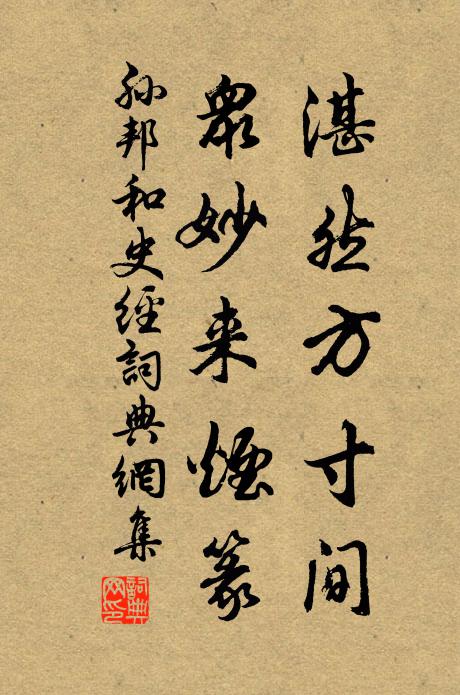 湛然方寸间
众妙来烟篆
孙邦和史经词典网集
词典网印